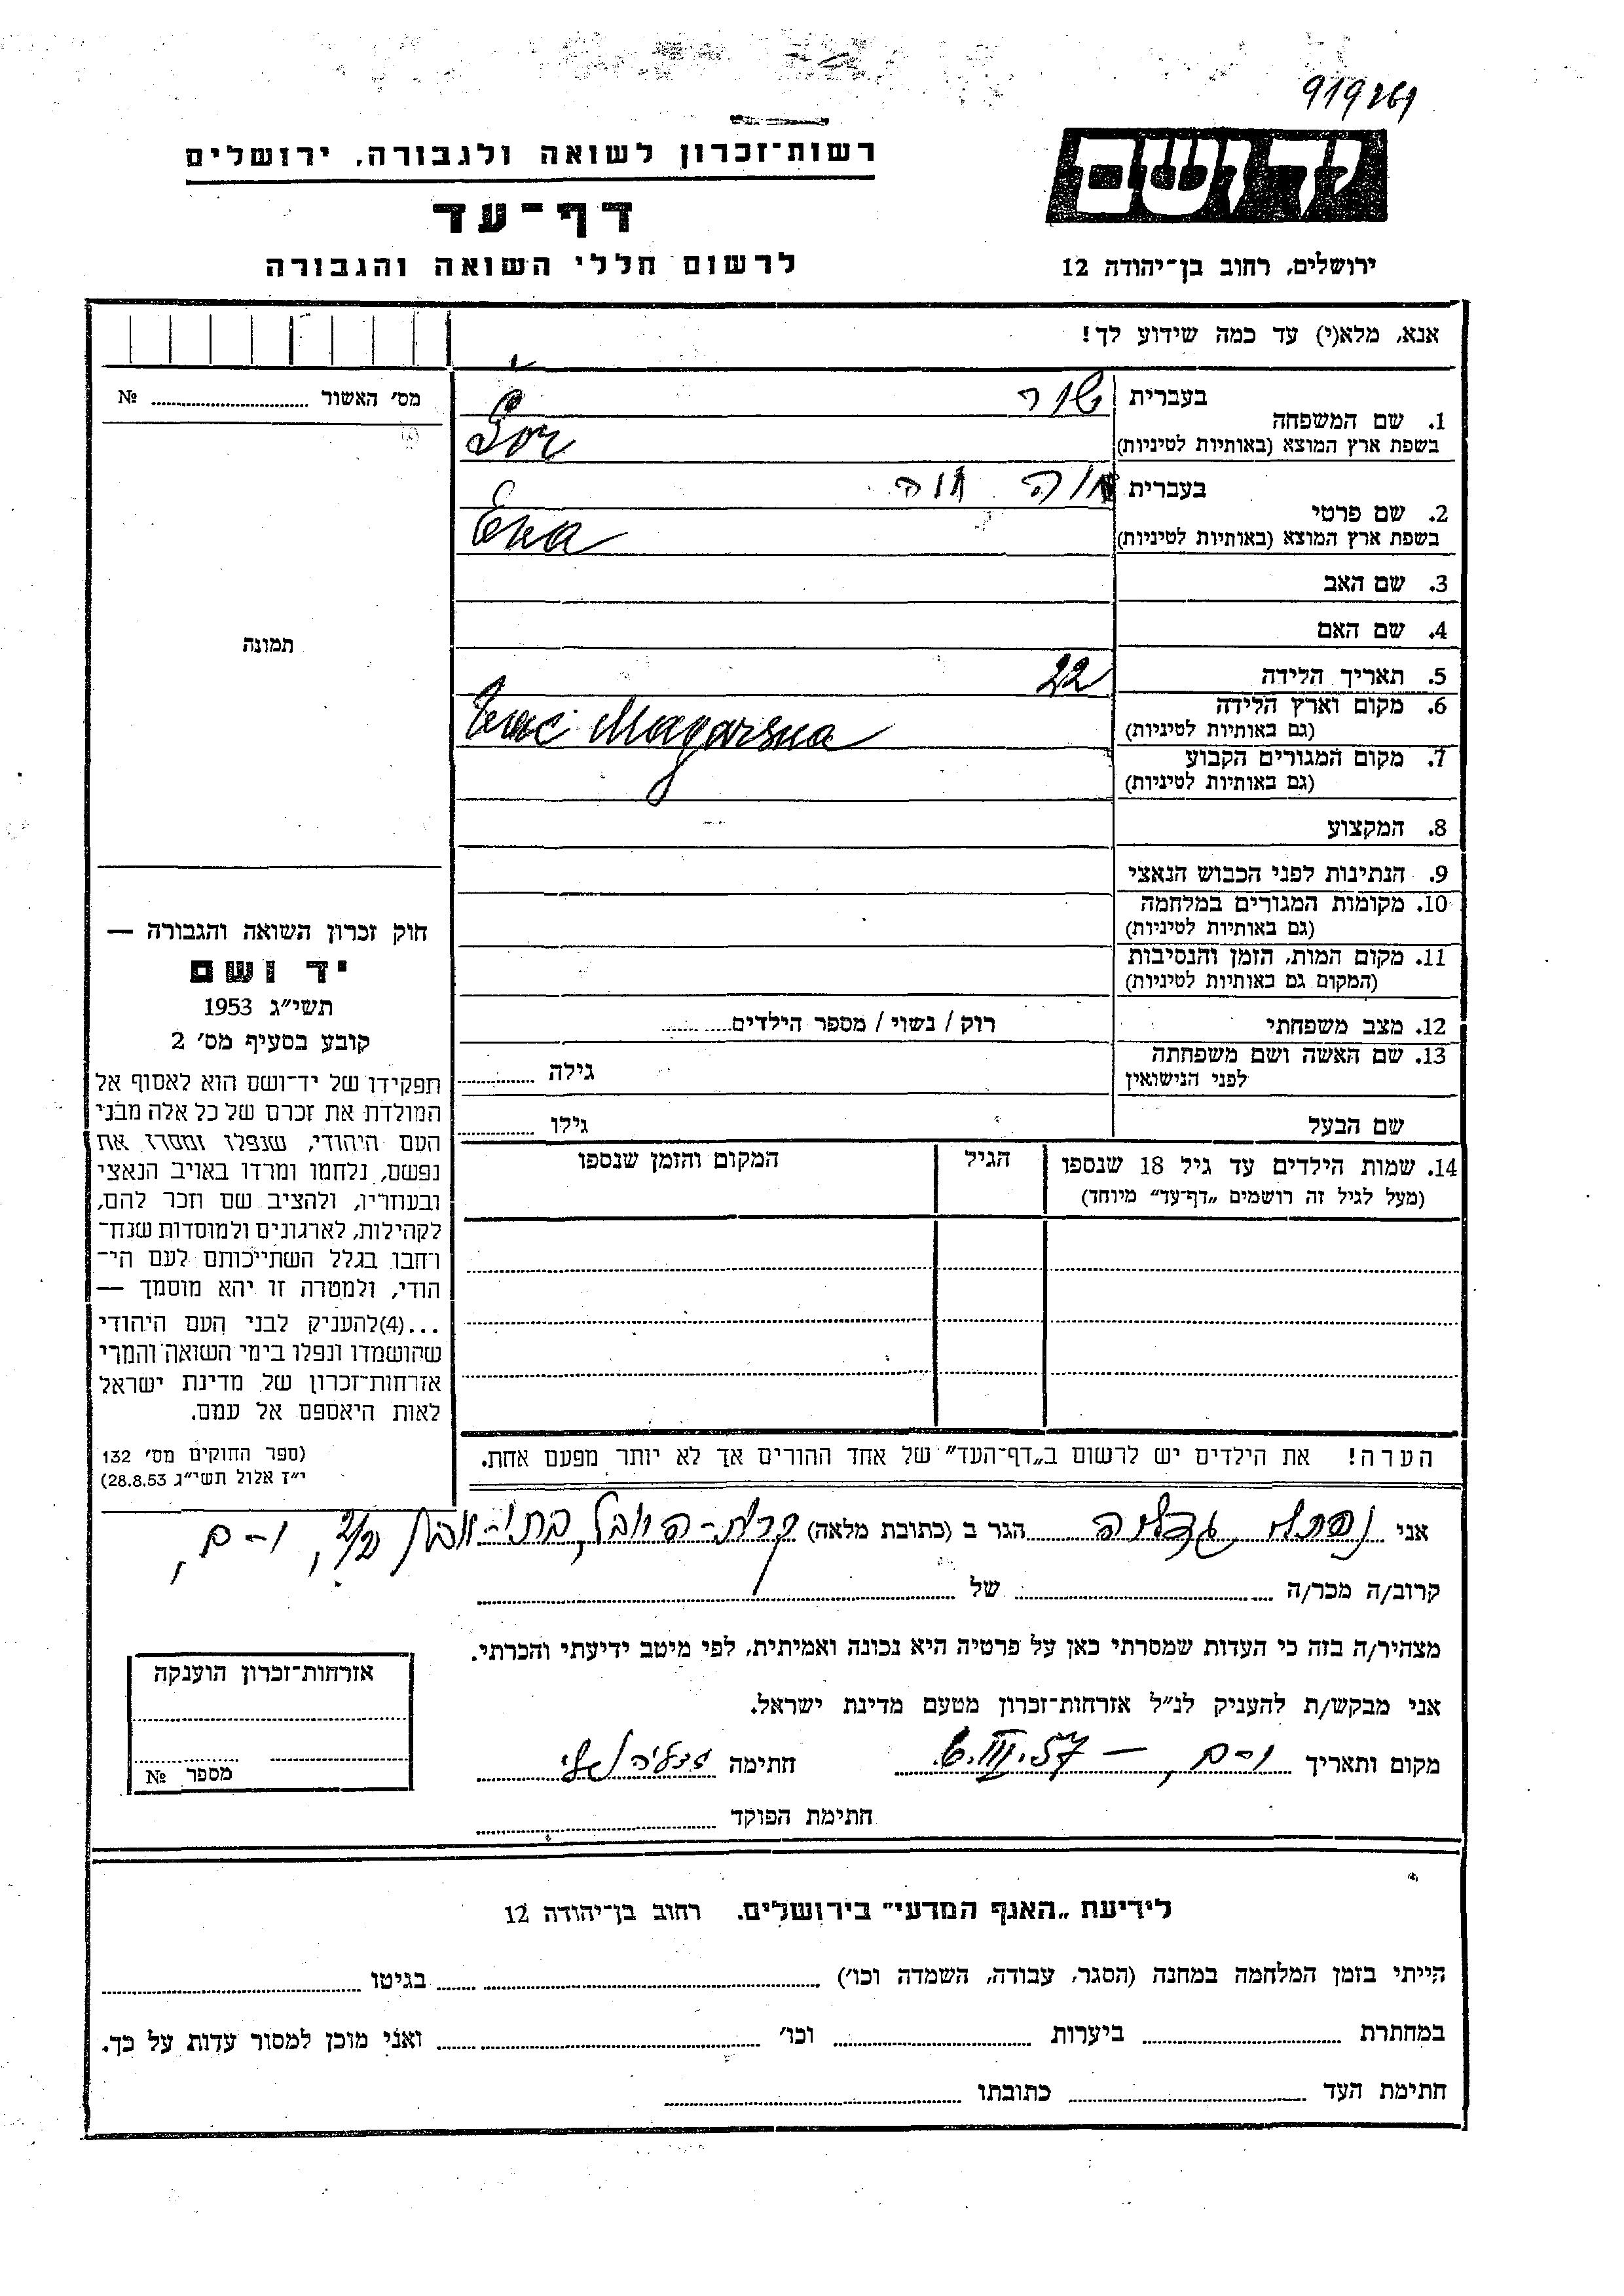 919267
רשות־זכרון לשואה ולגבורה, ירושלים
יד ושם
דף־עד
לרשום חללי השואה והגבורה
ירושלים, רחוב בן־יהודה 12
אנא, מלא(י) עד כמה שידוע לך!
מס׳ האשור № 
בעברית שור
1. שם המשפחה
בשפת ארץ המוצא (באותיות לטיניות) Šor
בעברית חוה חוה
2. שם פרטי
בשפת ארץ המוצא (באותיות לטיניות) Eva
3. שם האב
4. שם האם
תמונה
5. תאריך הלידה 22
6. מקום וארץ הלידה
(גם באותיות לטיניות)
7. מקום המגורים הקבוע
(גם באותיות לטיניות)
8. המקצוע
9. הנתינות לפני הכבוש הנאצי
10. מקומות המגורים במלחמה
(גם באותיות לטיניות)
11. מקום המות, הזמן והנסיבות
(המקום גם באותיות לטיניות)
12. מצב משפחתי רוק / נשוי / מספר הילדים
13. שם האשה ושם משפחתה
לפני הנישואין גילה
שם הבעל גילו
14. שמות הילדים עד גיל 18 שנספו הגיל המקום והזמן שנספו
(מעל לגיל זה רושמים „דף־עד״ מיוחד)
חוק זכרון השואה והגבורה —
יד ושם
תשי״ג 1953
קובע בסעיף מס׳ 2
תפקידו של יד־ושם הוא לאסוף אל
המולדת את זכרם של כל אלה מבני
העם היהודי, שנפלו ומסרו את
נפשם, נלחמו ומרדו באויב הנאצי
ובעוזריו, ולהציב שם וזכר להם,
לקהילות, לארגונים ולמוסדות שנח־
רחבו בגלל השתייכותם לעם הי־
הודי, ולמטרה זו יהא מוסמך —
...(4)להעניק לבני העם היהודי
שהושמדו ונפלו בימי השואה והמרי
אזרחות־זכרון של מדינת ישראל
לאות היאספם אל עמם.
(ספר החוקים מס׳ 132
י״ז אלול תשי״ג 28.8.53)
הערה! את הילדים יש לרשום ב„דף־העד״ של אחד ההורים אך לא יותר מפעם אחת.
אני גדליה הגר ב (כתובת מלאה) קרית-היובל, י-ם,
קרוב/ה מכר/ה של
מצהיר/ה בזה כי העדות שמסרתי כאן על פרטיה היא נכונה ואמיתית, לפי מיטב ידיעתי והכרתי.
אני מבקש/ת להעניק לנ״ל אזרחות־זכרון מטעם מדינת ישראל.
מקום ותאריך י-ם, — 6.III.57 חתימה
חתימת הפוקד
אזרחות־זכרון הוענקה
מספר №
לידיעת „האגף המדעי״ בירושלים. רחוב בן־יהודה 12
הייתי בזמן המלחמה במחנה (הסגר, עבודה, השמדה וכו׳) בגיטו
במחתרת ביערות וכו׳ ואני מוכן למסור עדות על כך.
חתימת העד כתובתו